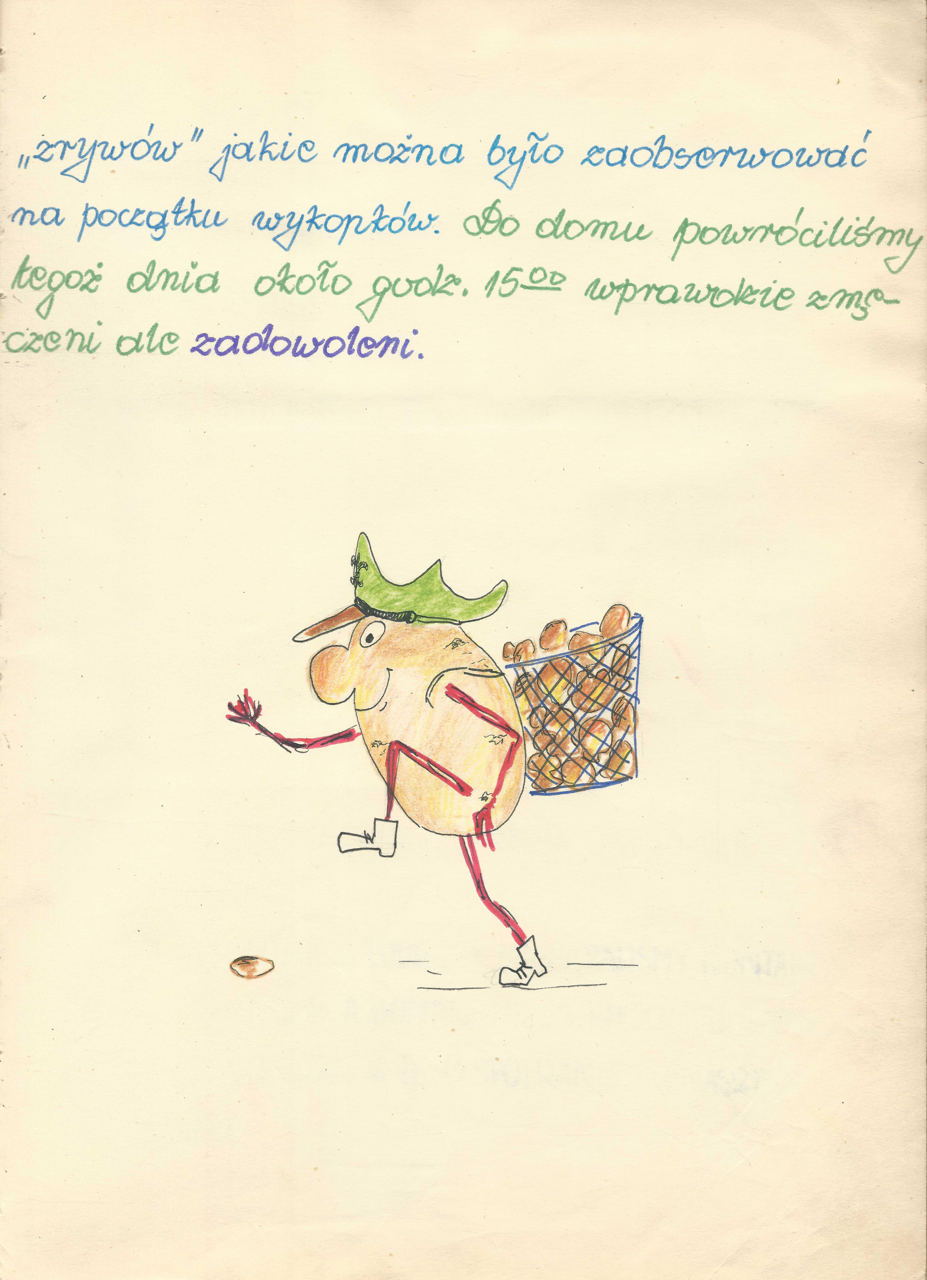 „zrywów" jakie można było zaobserwować
na początku wykopków. Do domu powróciliśmy
tegoż dnia około godz. 15⁰⁰ wprawdzie zmę-
czeni ale zadowoleni.